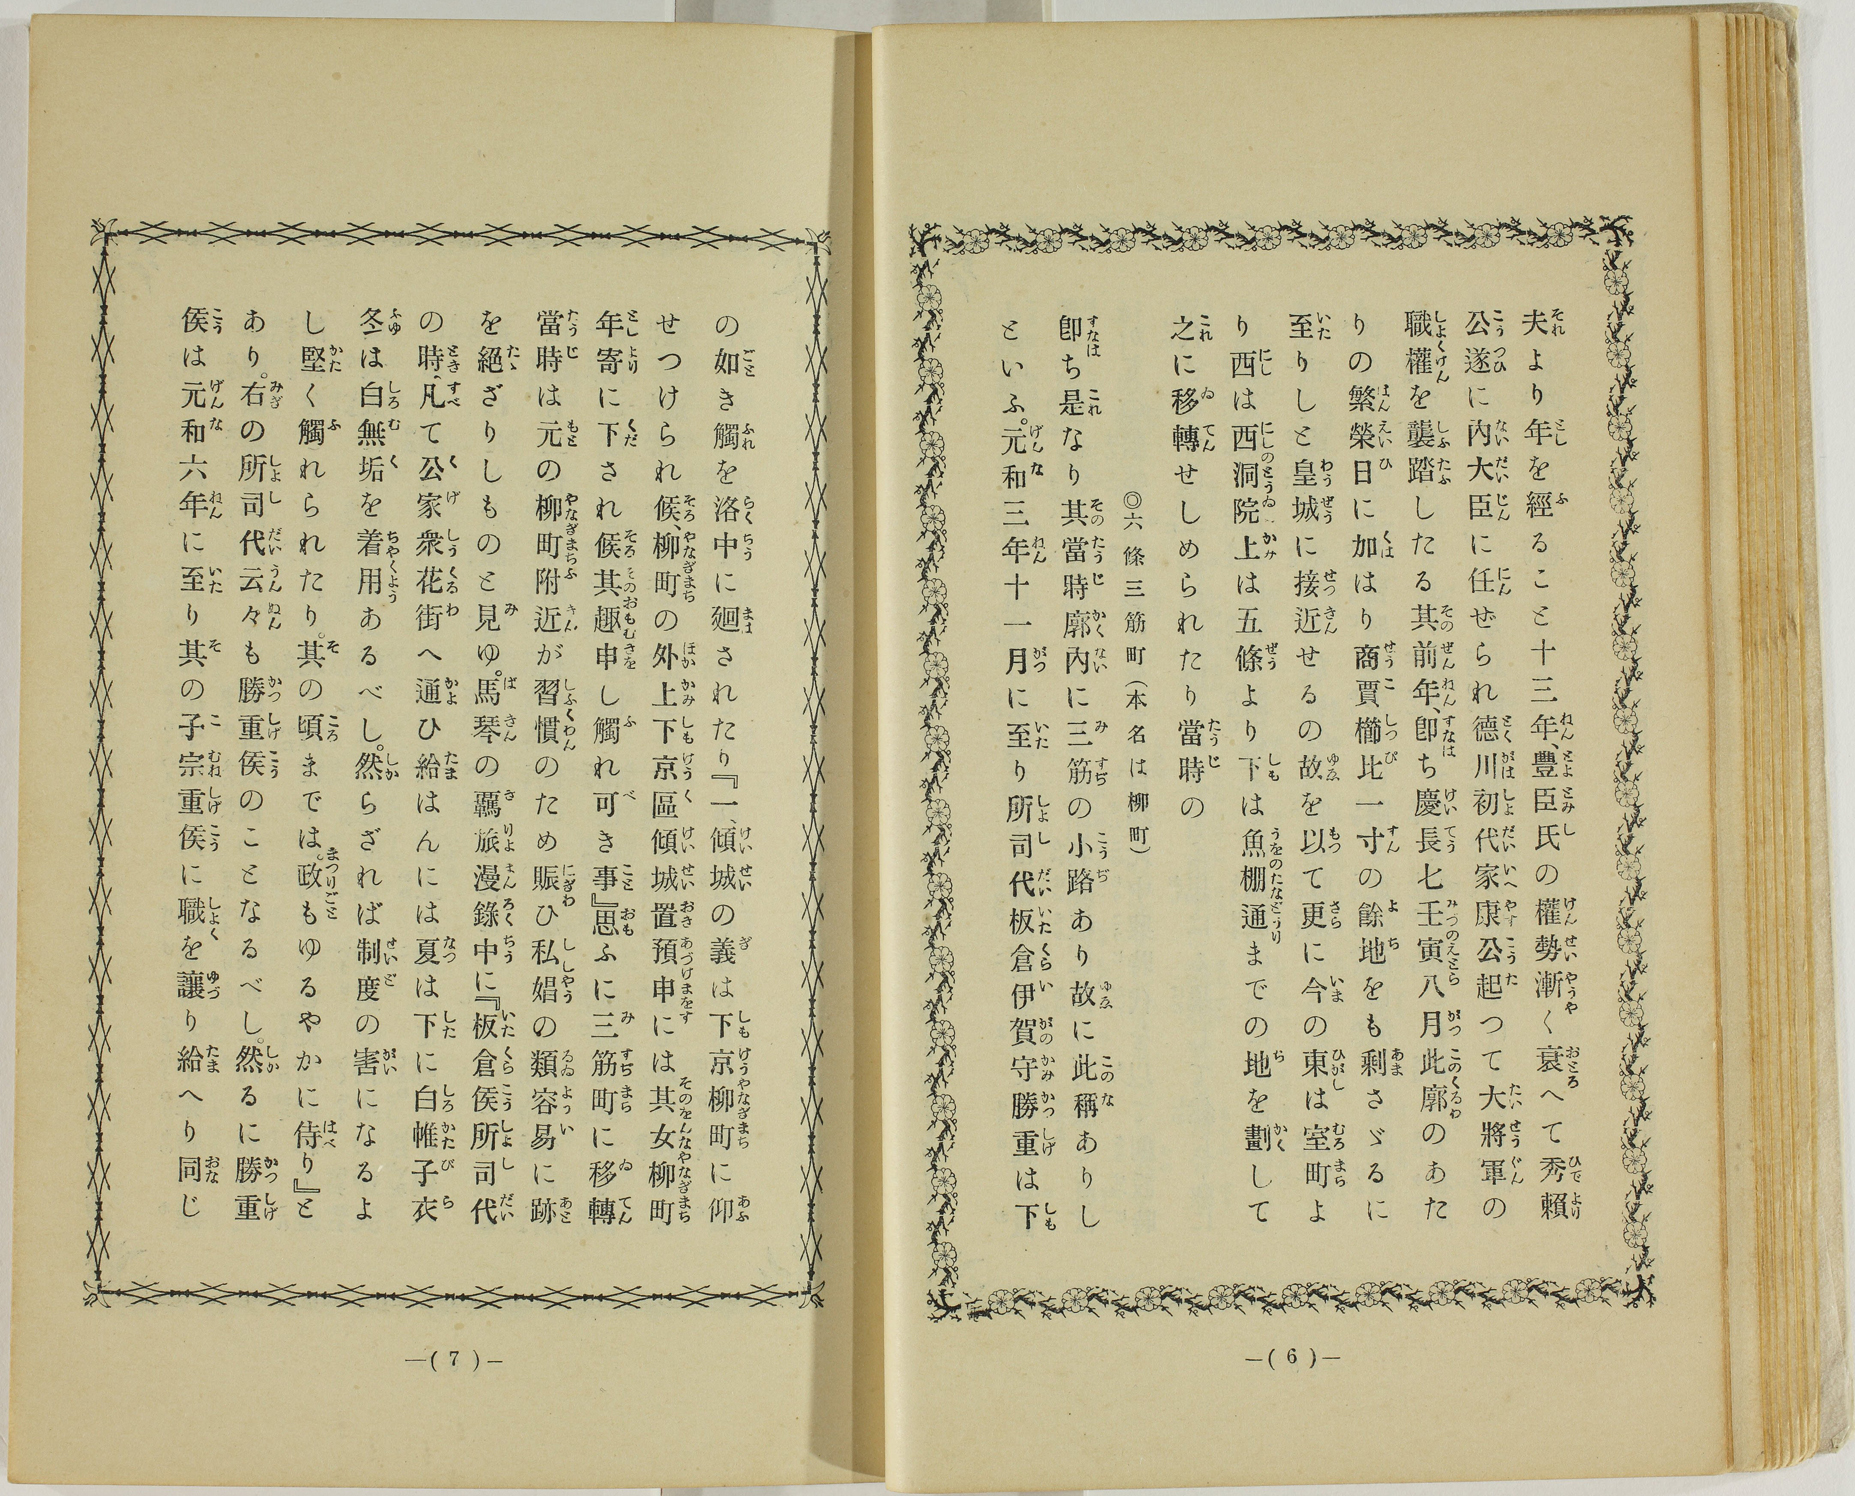 夫より年を經ること十三年、豐臣氏の權勢漸く衰へて秀賴
公遂に內大臣に任ぜられ德川初代家康公起つて大將軍の
職權を襲踏したる其前年、卽ち慶長七壬寅八月此廓のあた
りの繁榮日に加はり商賈櫛比一寸の餘地をも剩さゞるに
至りしと皇城に接近せるの故を以て更に今の東は室町よ
り西は西洞院上は五條より下は魚棚通までの地を劃して
之に移轉せしめられたり當時の
◎六條三筋町（本名は柳町）
卽ち是なり其當時廓內に三筋の小路あり故に此稱ありし
といふ。元和三年十一月に至り所司代板倉伊賀守勝重は下
—( 6 )—
の如き觸を洛中に廻されたり『一、傾城の義は下京柳町に仰
せつけられ候、柳町の外上下京區傾城置預申には其女柳町
年寄に下され候其趣申し觸れ可き事』思ふに三筋町に移轉
當時は元の柳町附近が習慣のため賑ひ私娼の類容易に跡
を絕ざりしものと見ゆ。馬琴の羇旅漫錄中に『板倉侯所司代
の時、凡て公家衆花街へ通ひ給はんには夏は下に白帷子衣
冬は白無垢を着用あるべし。然らざれば制度の害になるよ
し堅く觸れられたり。其の頃までは。政もゆるやかに侍り』と
あり。右の所司代云々も勝重侯のことなるべし。然るに勝重
侯は元和六年に至り其の子宗重侯に職を讓り給へり同じ
—( 7 )—